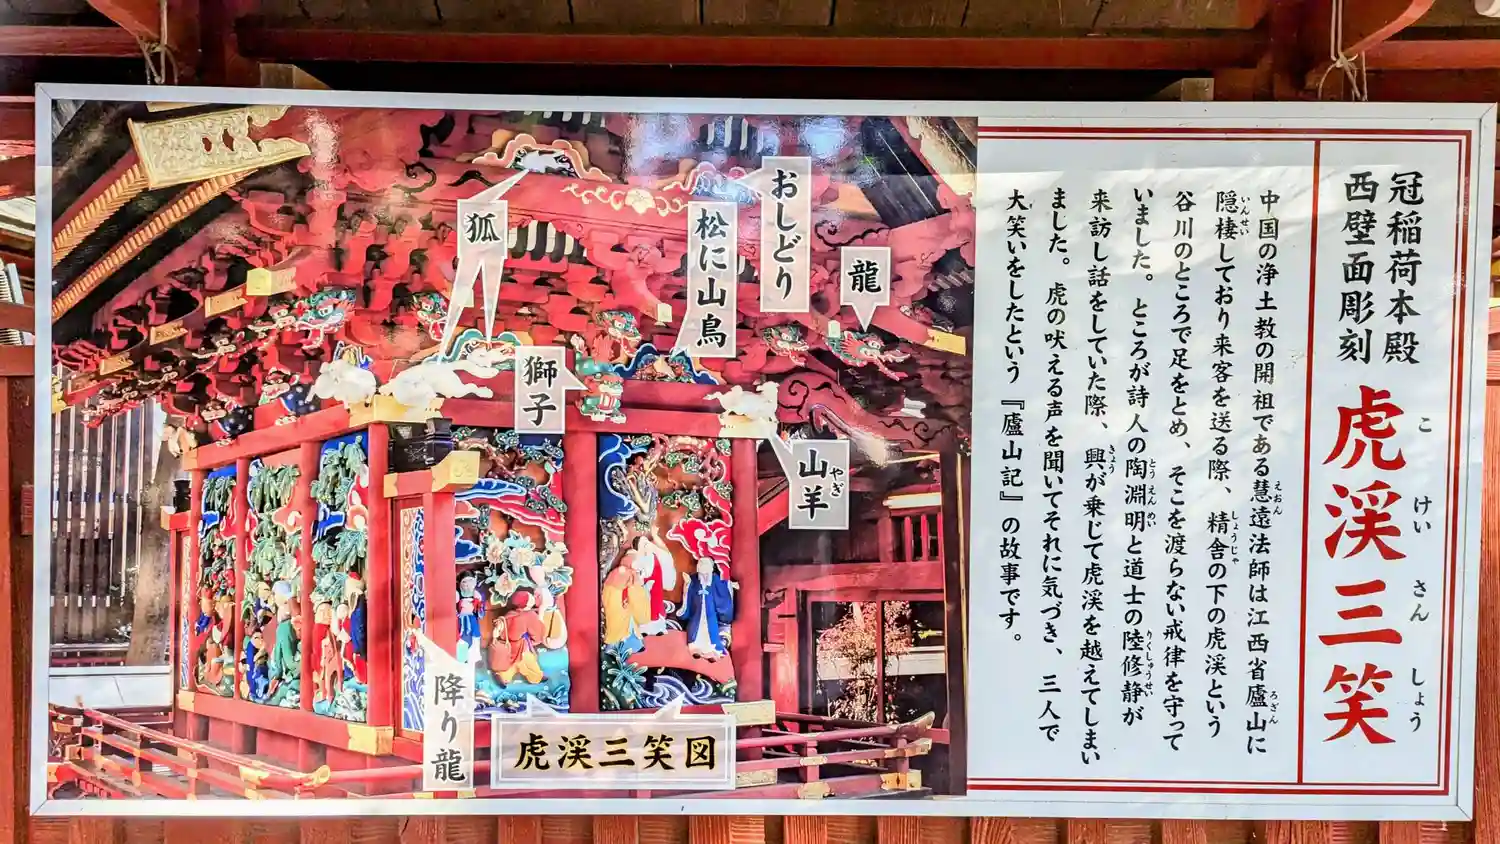 冠稲荷本殿
西壁面彫刻
虎渓三笑
こ けい さん しょう
中国の浄土教の開祖である慧遠法師は江西省廬山に
えおん
ろざん
隠棲しており来客を送る際、精舎の下の虎渓という
いんせい
しょうじゃ
谷川のところで足をとめ、そこを渡らない戒律を守って
いました。ところが詩人の陶淵明と道士の陸修静が
とう えんめい
りくしゅうせい
来訪し話をしていた際、興が乗じて虎渓を越えてしまい
きょう
ました。虎の吠える声を聞いてそれに気づき、三人で
大笑いをしたという『廬山記』の故事です。
おしどり
松に山鳥
狐
龍
獅子
山羊
やぎ
降り龍
虎渓三笑図